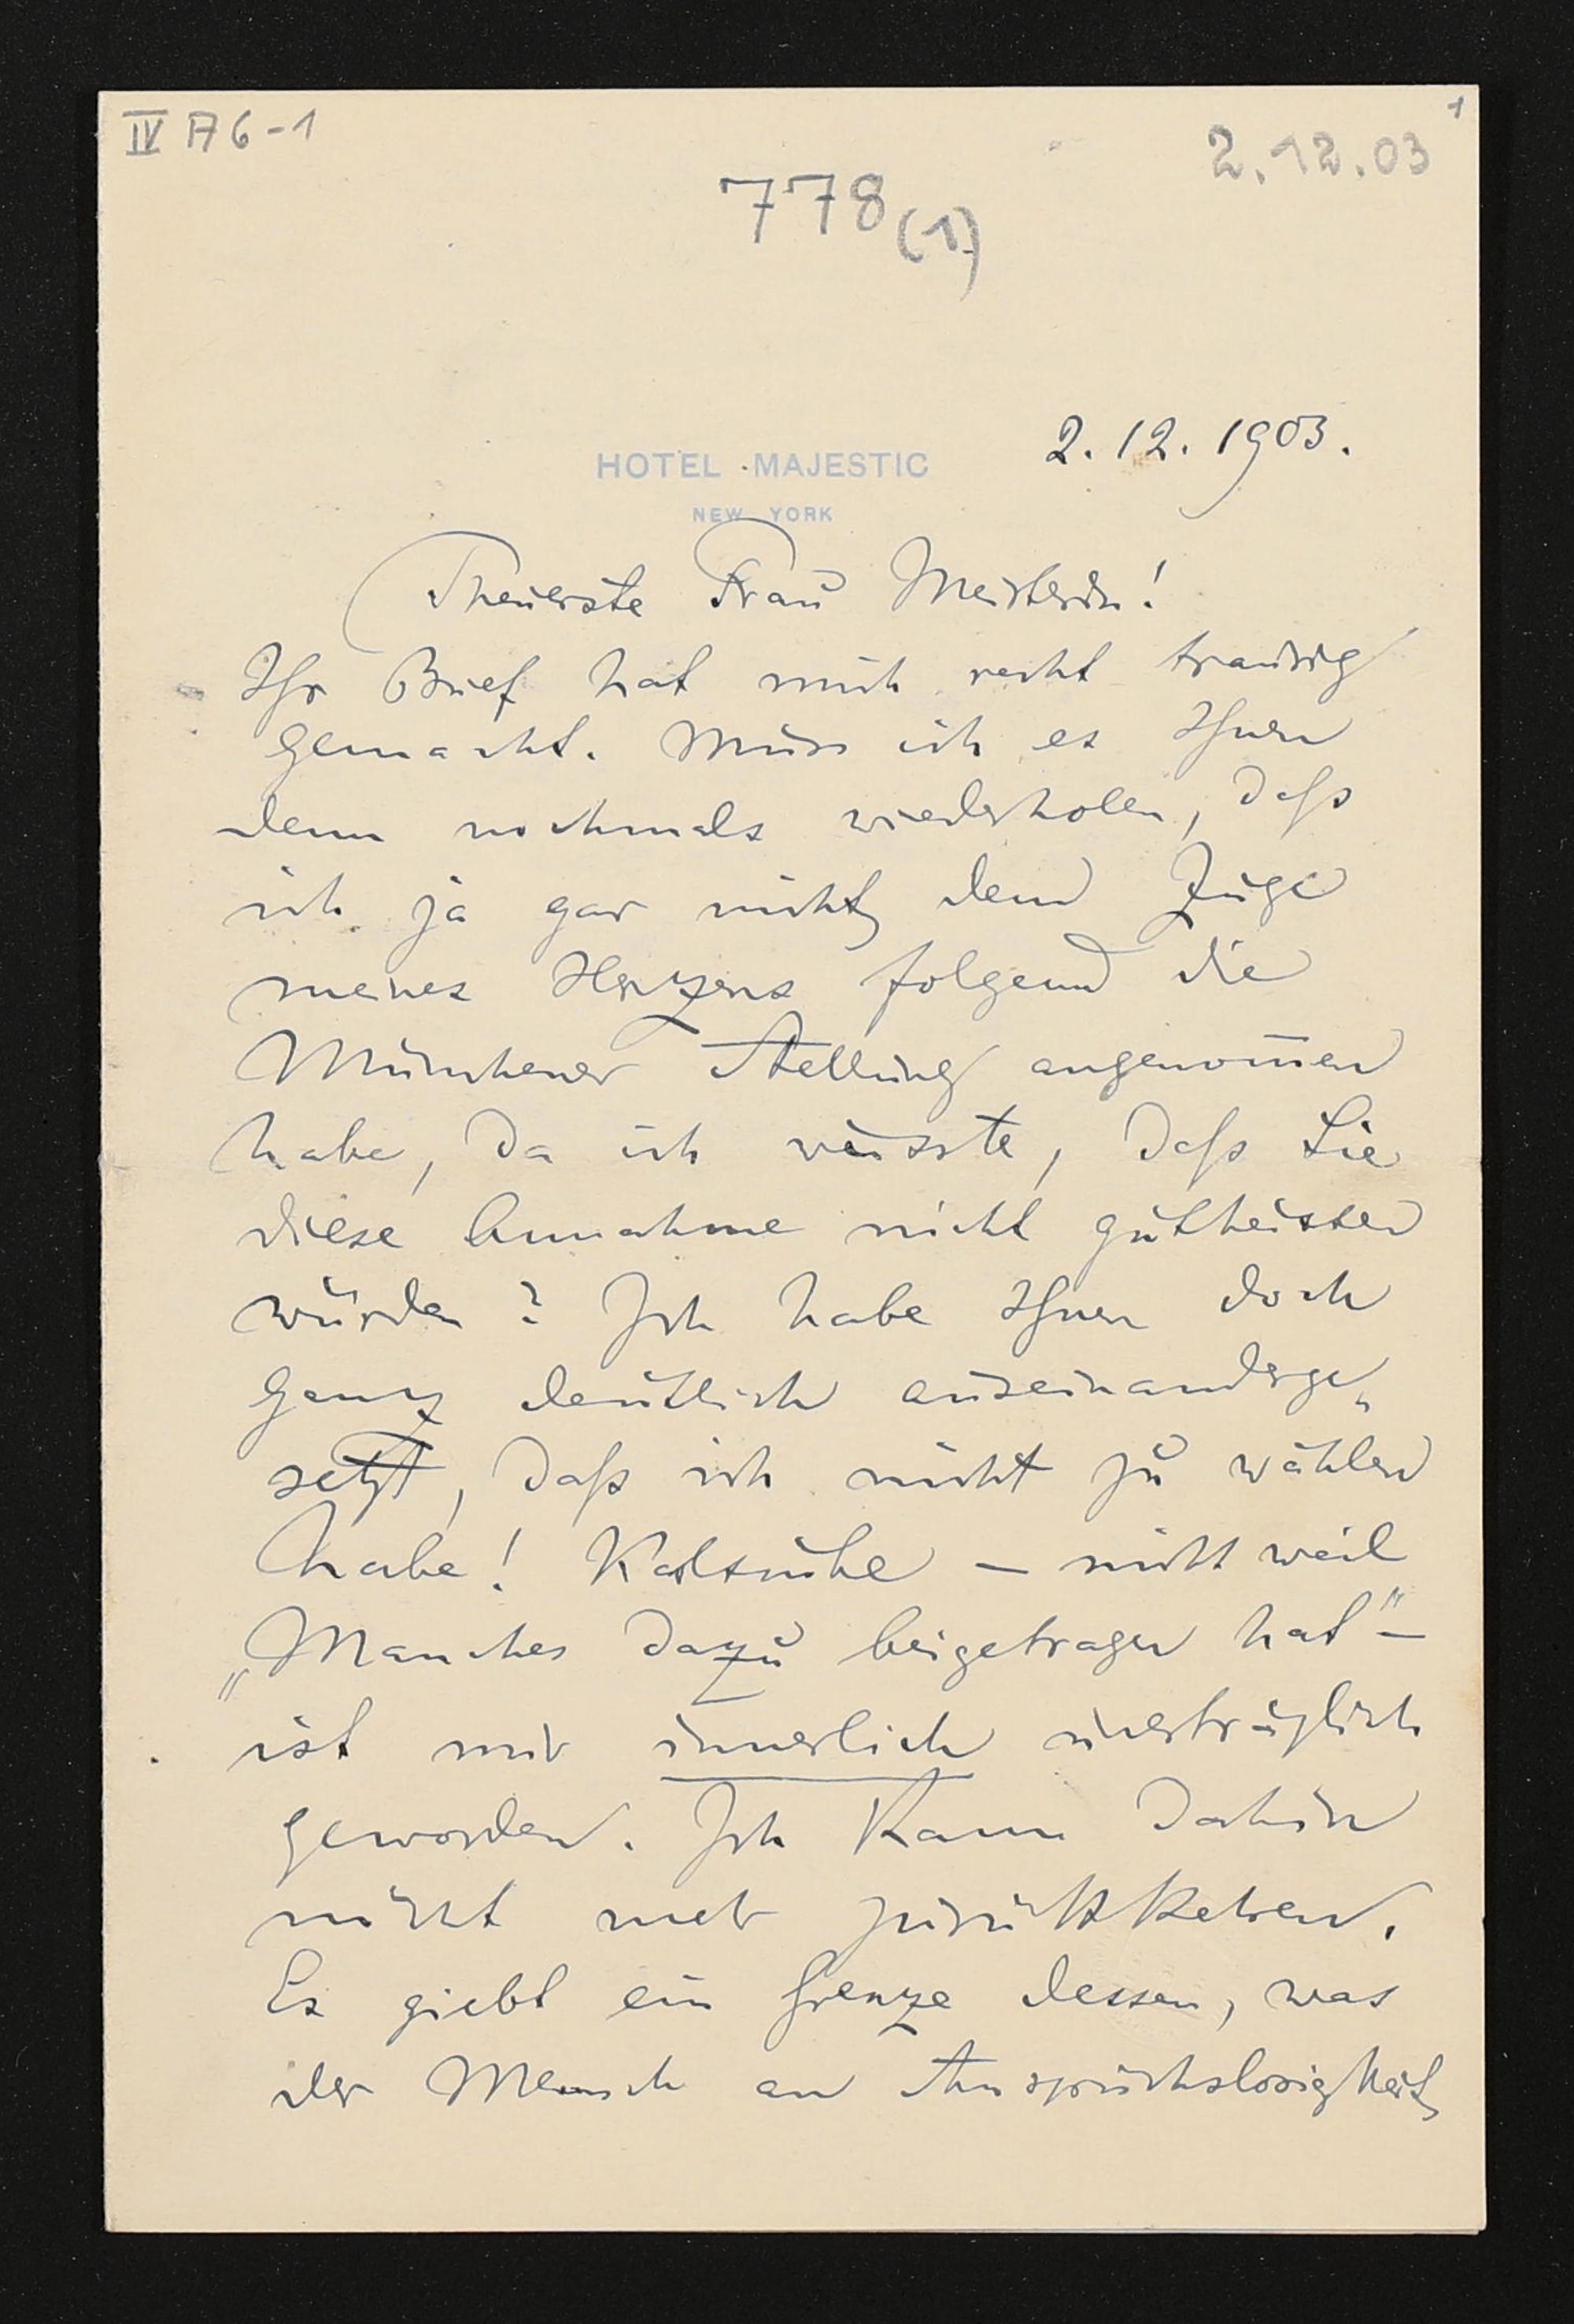 IV A 6 - 1
1
2.12.03
778 (1)
2. 12. 1903.
HOTEL MAJESTIC
NEW YORK
Theuerste Frau Meisterin!
Ihr Brief hat mich recht traurig
gemacht. Muss ich es Ihnen
denn nochmals wiederholen, daß
ich ja gar nicht, dem Zuge
meines Herzens folgend die
Münchener Stellung angenom̄en
habe, da ich wusste, daß Sie
diese Annahme nicht gutheissen
würden? Ich habe Ihnen doch
ganz deutlich auseinanderge„
setzt, daß ich nicht zu wählen
habe! Karlsruhe – nicht weil
„Manches dazu beigetragen hat" –
ist mir innerlich unerträglich
geworden. Ich kann dahin
nicht mehr zurükkkehren.
Es giebt ein Grenze dessen, was
der Mensch an Anspruchslosigkeit,